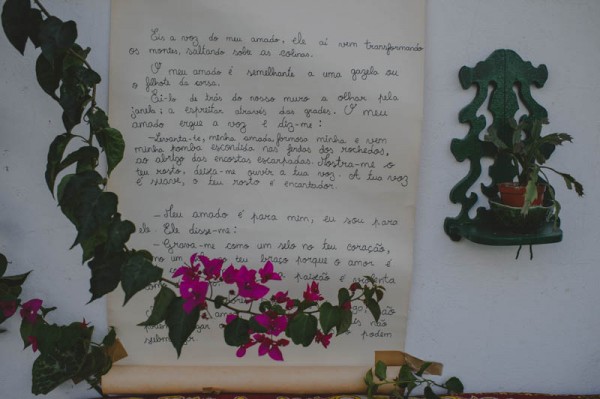 Eis a voz do meu amado, ele aí vem transformando
os montes, saltando sobre as colinas.
O meu amado é semelhante a uma gazela ou
o filhote da corsa.
Ei-lo de trás do nosso muro a olhar pela
janela; a espreitar através das grades. O meu
amado ergue a voz e diz-me:
-Levanta-te, minha amada, formosa minha e vem
minha pomba escondida nas fendas dos rochedos,
ao abrigo das encostas escarpadas. Mostra-me o
teu rosto, deixa-me ouvir a tua voz. A tua voz
é suave, o teu rosto é encantador.
- Meu amado é para mim, eu sou para
ele. Ele disse-me:
- Grava-me como um selo no teu coração,
no teu braço porque o amor é
paixão é violenta
não
podem